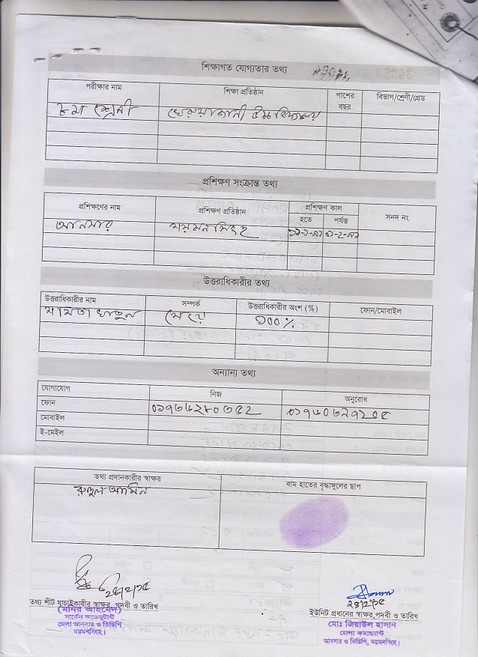 শিক্ষাগত যোগ্যতার তথ্য
পরীক্ষার নাম শিক্ষা প্রতিষ্ঠান পাশের বছর বিভাগ/শ্রেণী/গ্রেড
৮ম শ্রেনী
প্রশিক্ষণ সংক্রান্ত তথ্য
প্রশিক্ষণের নাম প্রশিক্ষণ প্রতিষ্ঠান প্রশিক্ষণ কাল সনদ নং
হতে পর্যন্ত
আনসার ময়মনসিংহ
উত্তরাধিকারীর তথ্য
উত্তরাধিকারীর নাম সম্পর্ক উত্তরাধিকারীর অংশ (%) ফোন/মোবাইল
খাতুন মেয়ে ১০০%
অন্যান্য তথ্য
যোগাযোগ নিজ অনুরোধ
ফোন
মোবাইল
ই-মেইল
তথ্য প্রদানকারীর স্বাক্ষর বাম হাতের বৃদ্ধাঙ্গুলের ছাপ
রুহুল আমিন
তথ্য শীট যাচাইকারীর স্বাক্ষর, পদবী ও তারিখ
(মনির আহমেদ)
সার্কেল অ্যাডজুট্যান্ট
জেলা আনসার ও ভিডিপি
ময়মনসিংহ।
ইউনিট প্রধানের স্বাক্ষর, পদবী ও তারিখ
মোঃ জিয়াউল হাসান
জেলা কমান্ড্যান্ট
আনসার ও ভিডিপি, ময়মনসিংহ।